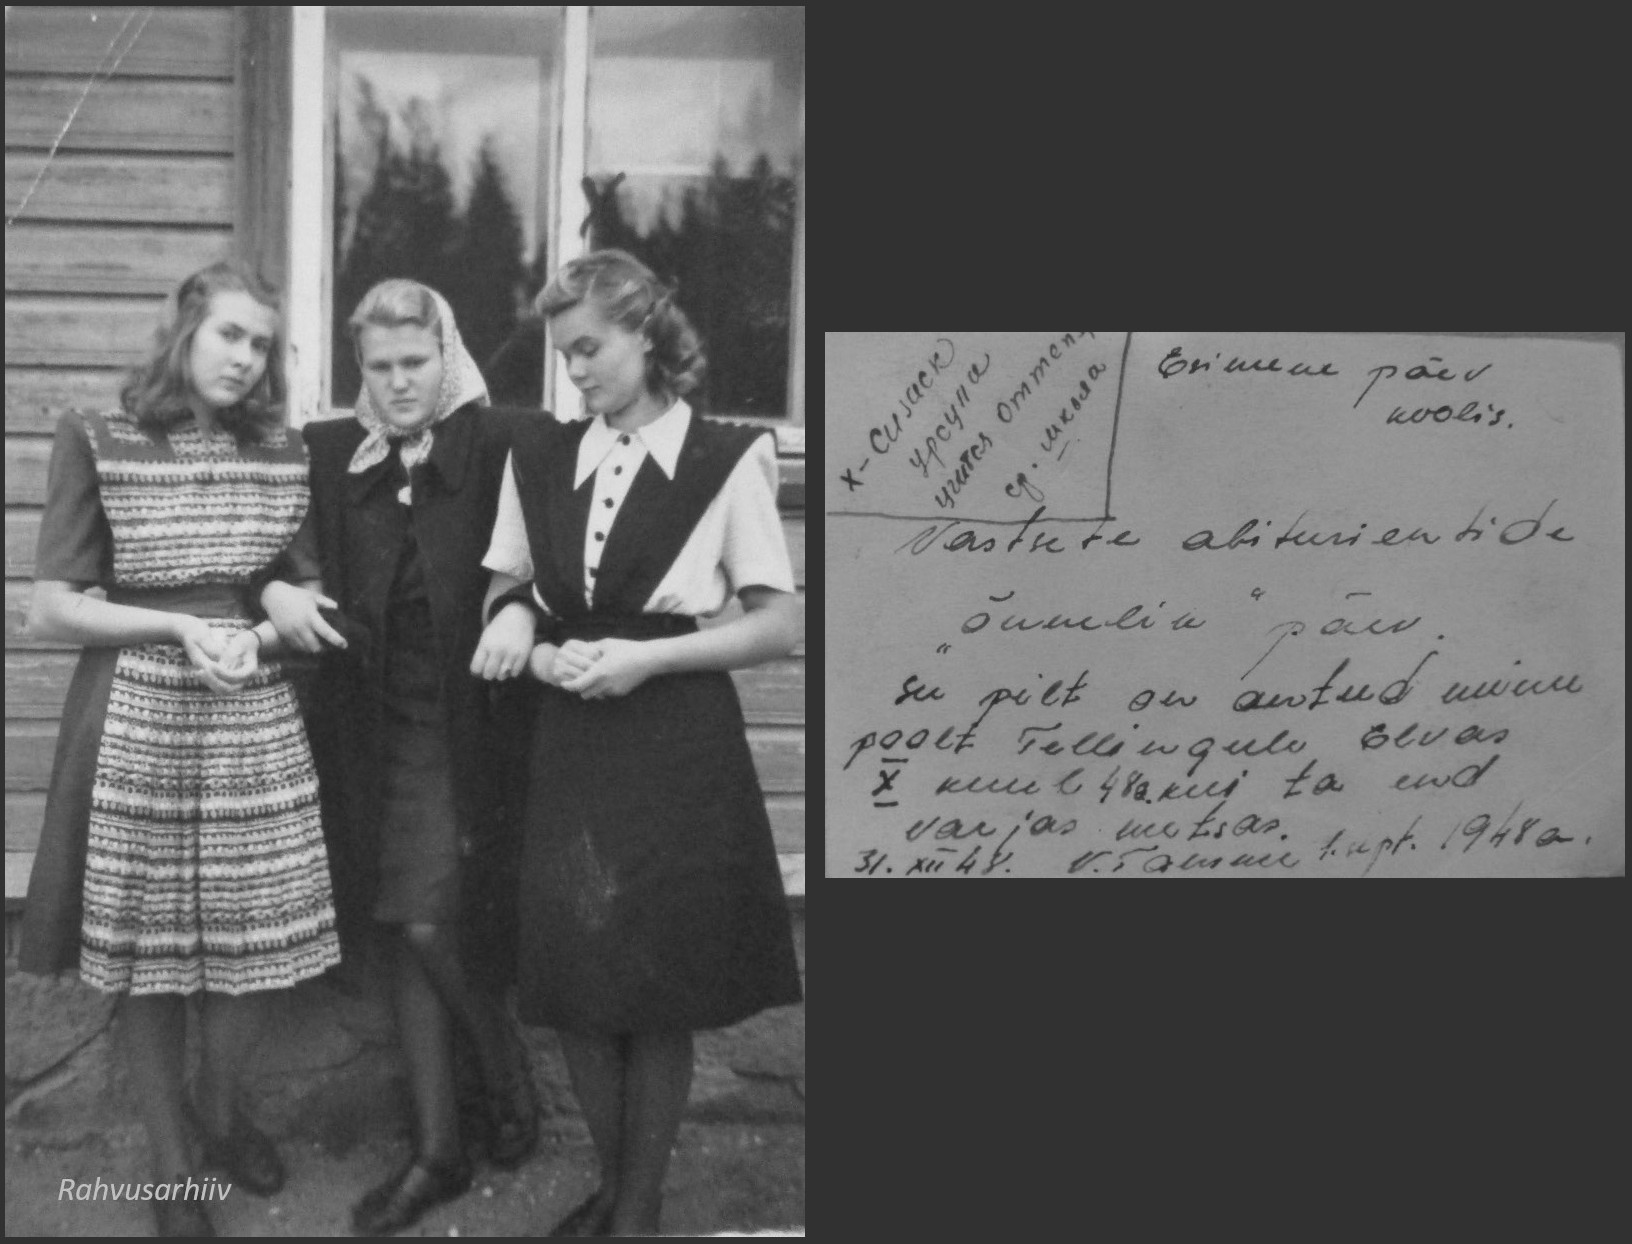 Rahvusarhiiv
x - Сизаск
Урсула
учится Отмен-
ср. школа
Esimene päev
koolis.
Vastsete abiturientide
"õnnelik" päev.
See pilt on antud minu
poolt Tellingule Elvas
X kuul 48a. kui ta end
varjas metsas.
31. XII 48. V. Tamme 1. sept. 1948 a.